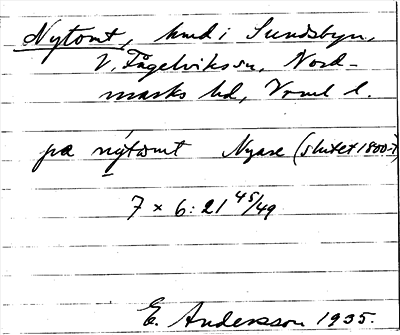 Nytomt, hmd i Sundsbyn,
V. Fågelviks sn, Nord-
marks hd, Vrml l.
på nýtωmt Nyare (slutet 1800-t)
7 × 6: 21 45/49
E. Andersson 1935.